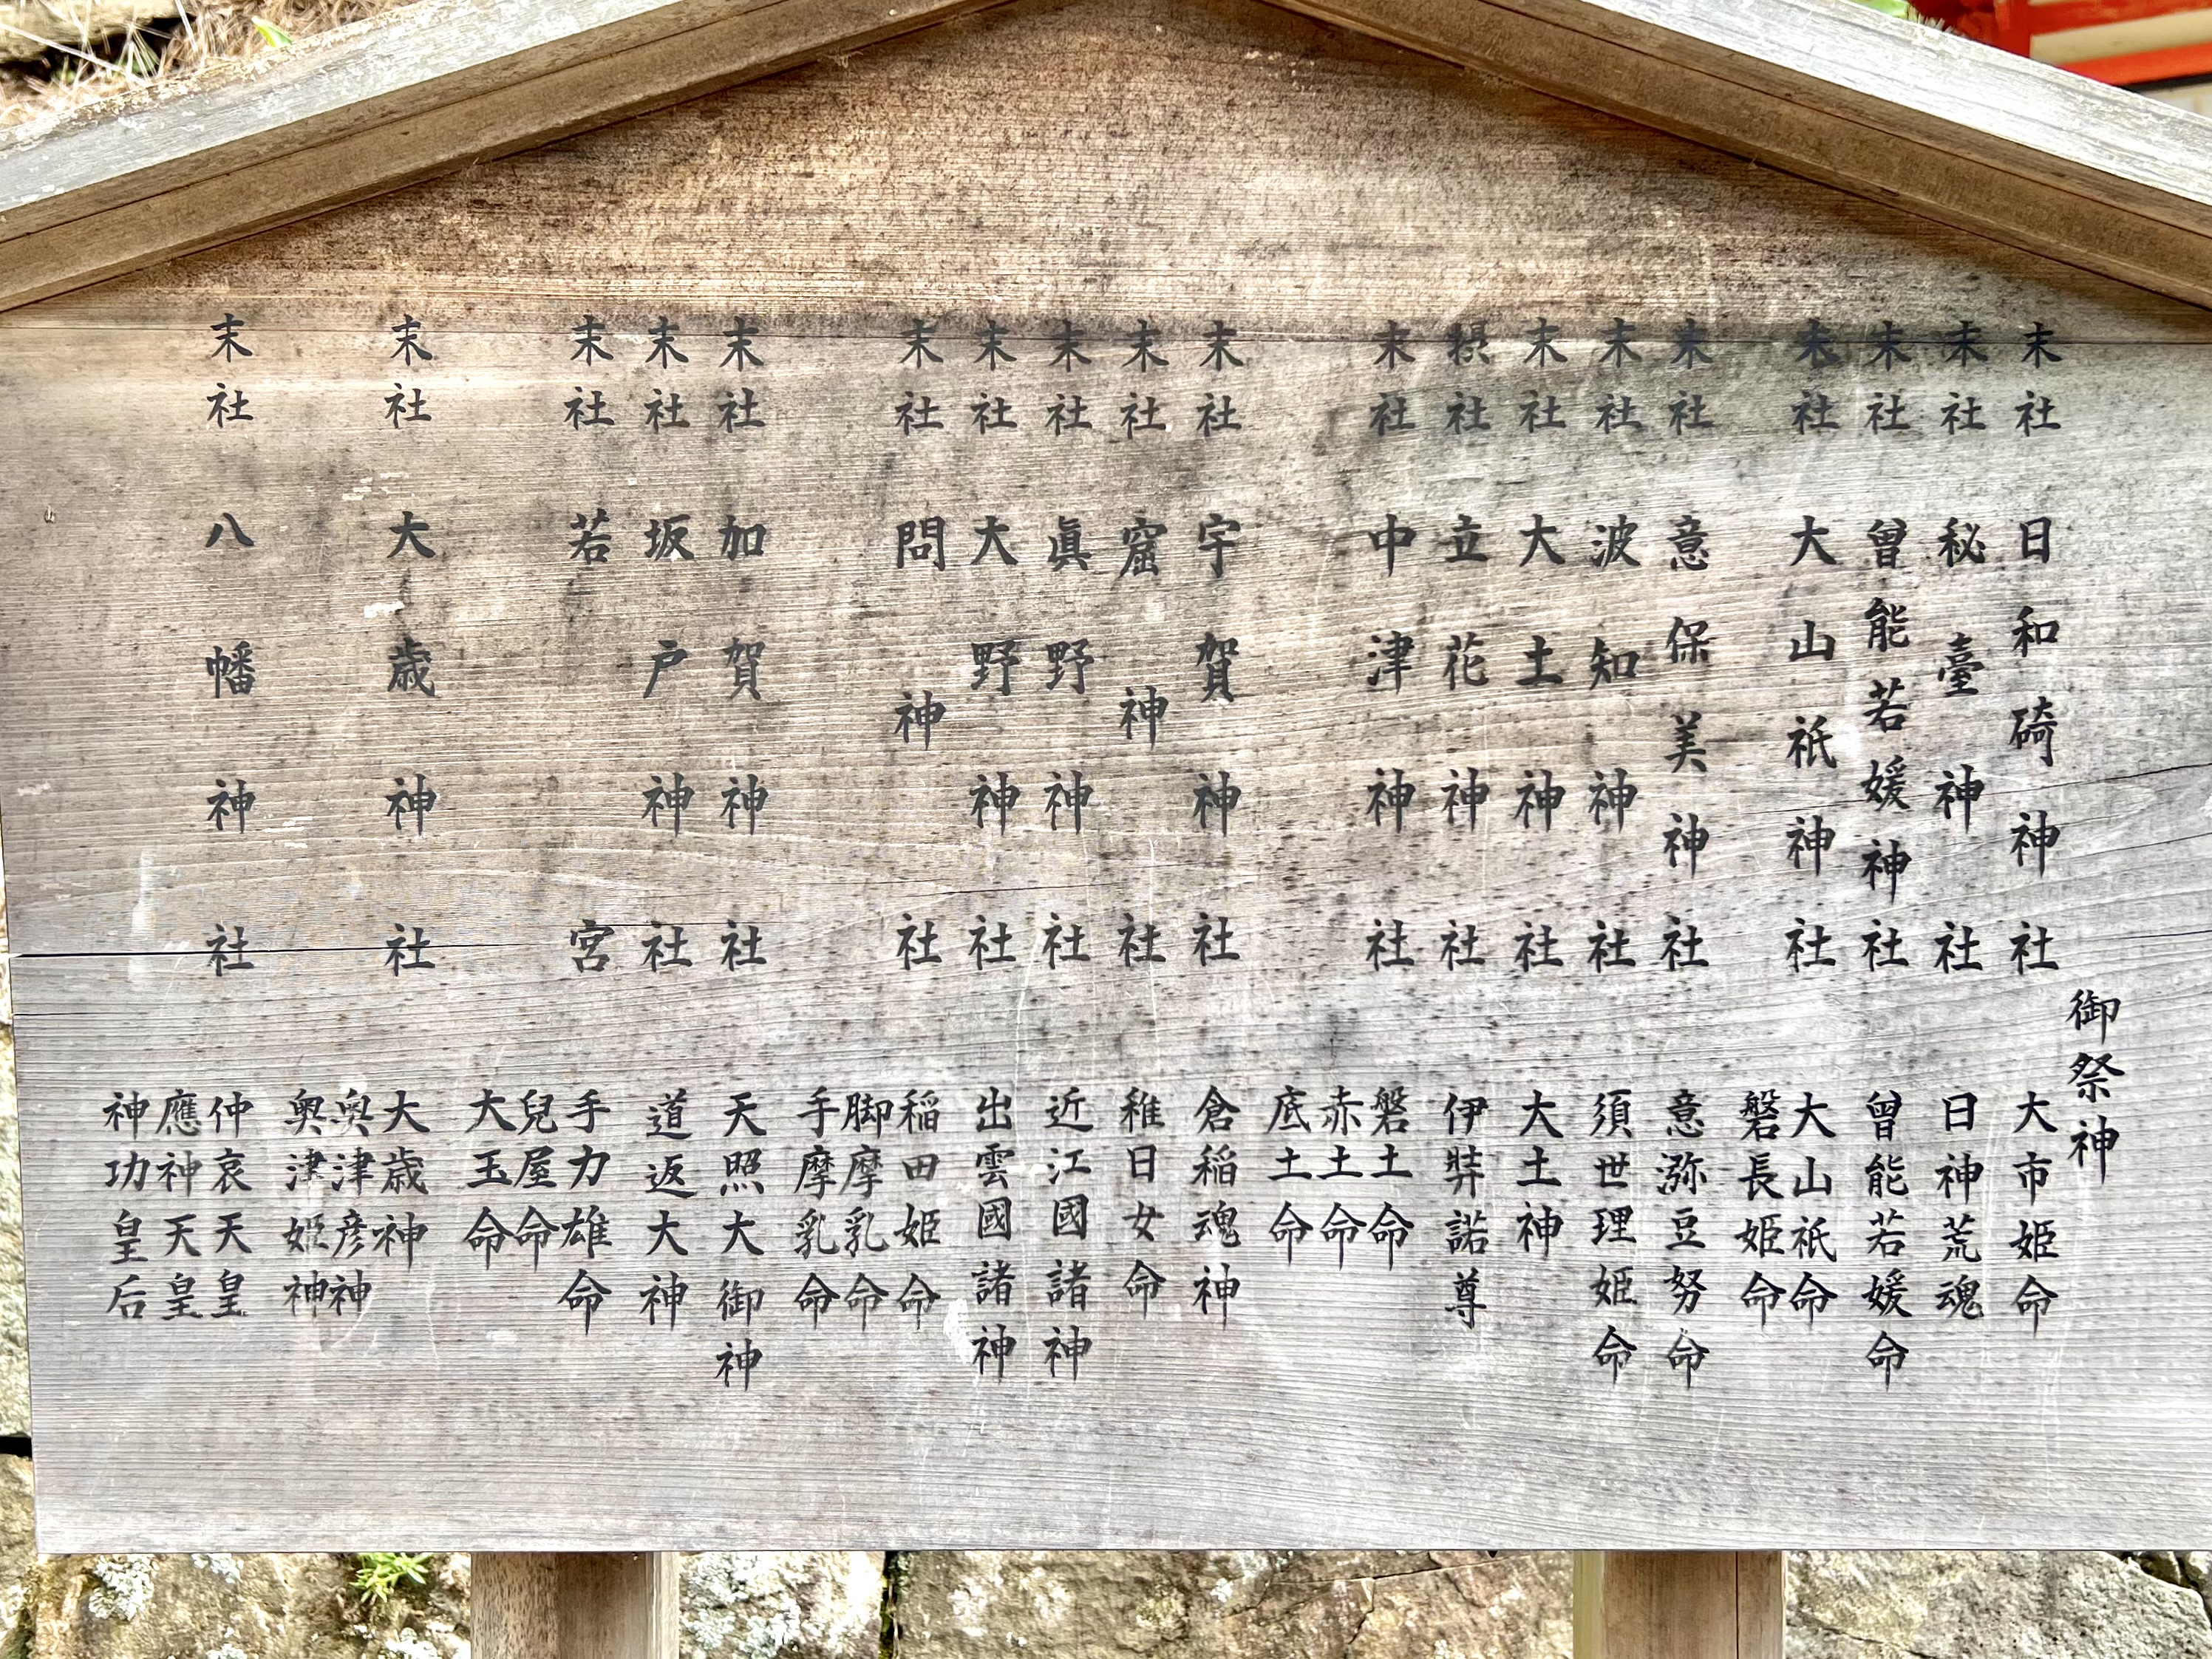 御祭神
末社 日和碕神社 大市姫命
末社 秘臺神社 日神荒魂
末社 曾能若媛神社 曾能若媛命
末社 大山祇神社 大山祇命
磐長姫命
末社 意保美神社 意弥豆努命
末社 波知神社 須世理姫命
末社 大土神社 大土神
摂社 立花神社 伊弉諾尊
末社 中津神社 磐土命
赤土命
底土命
末社 宇賀神社 倉稲魂神
末社 窟神社 稚日女命
末社 眞野神社 近江國諸神
末社 大野神社 出雲國諸神
末社 問神社 稲田姫命
脚摩乳命
手摩乳命
末社 加賀神社 天照大御神
末社 坂戸神社 道返大神
末社 若宮 手力雄命
兒屋命
大玉命
末社 大歳神社 大歳神
奥津彦神
奥津姫神
末社 八幡神社 仲哀天皇
應神天皇
神功皇后